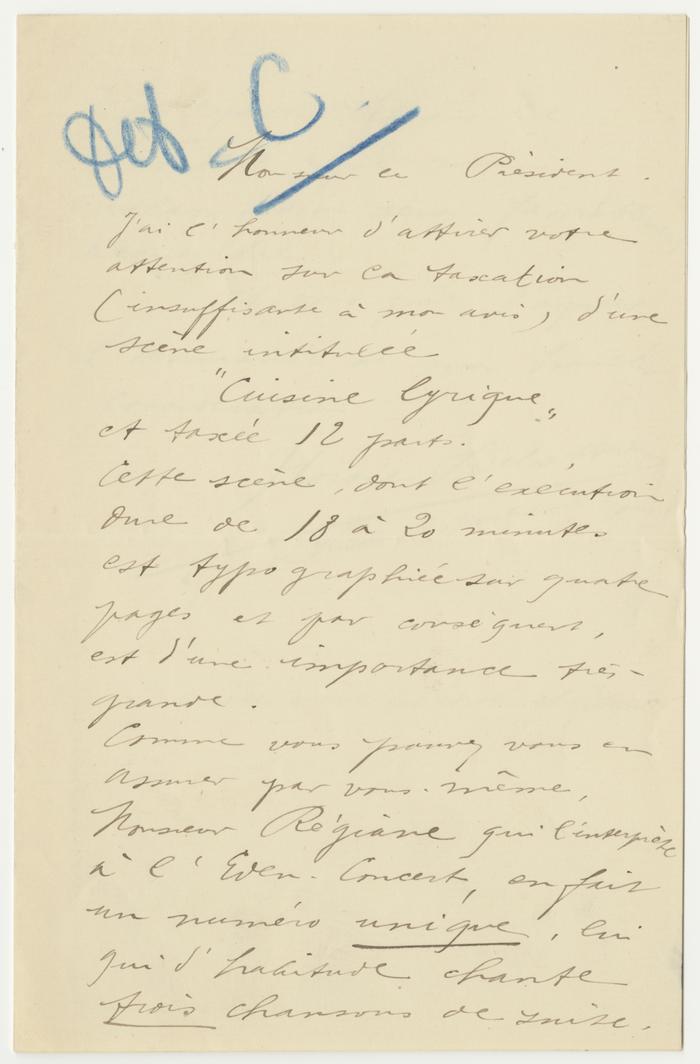 C
Monsieur le Président.
J'ai l'honneur d'attirer votre
attention sur la taxation
(insuffisante à mon avis) d'une
scène intitulée
"Cuisine lyrique"
et taxée 12 parts.
Cette scène, dont l'exécution
dure de 18 à 20 minutes
est typographiée sur quatre
pages et par conséquent,
est d'une importance très-
grande.
Comme vous pouvez vous en
assurer par vous-même,
Monsieur Régiane qui l'interprète
à l'Eden-Concert, en fait
un numéro unique, lui
qui d'habitude chante
trois chansons de suite.